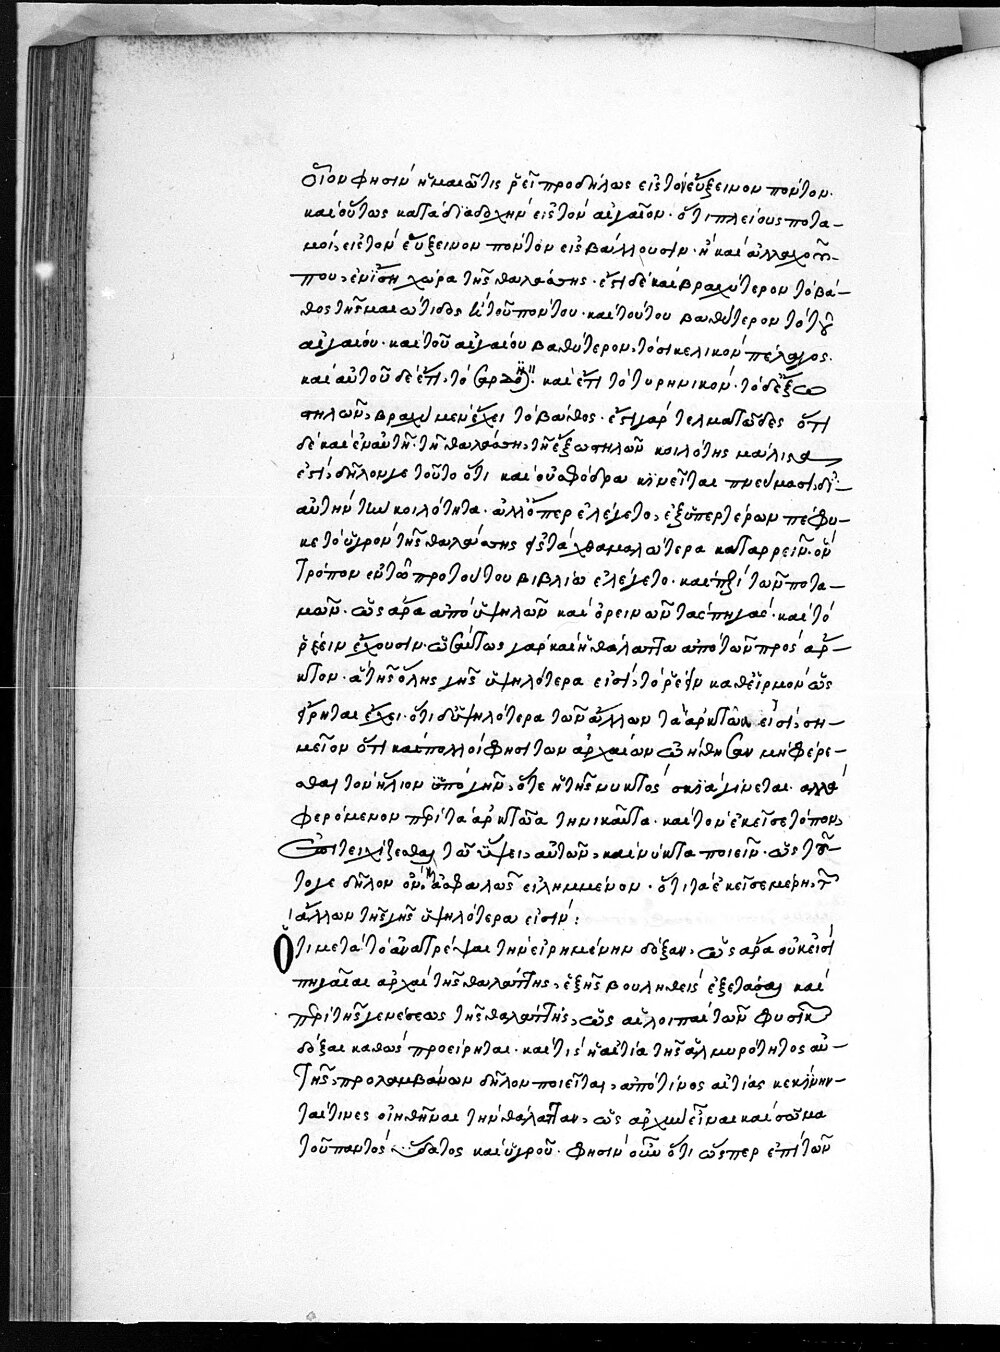 οἷον φησὶν ἡ μαιῶτις ῥεῖ προδήλως εἰς τὸν εὔξεινον πόντον.
καὶ οὕτως κατὰ διαδοχὴν εἰς τὸν αἰγαῖον· ὅτι πλείους ποτα-
μοὶ, εἰς τὸν εὔξεινον πόντον εἰσβάλλουσιν· ἢ καὶ ἀλλαχοῦ
που, ἐν ἴση χώρα τῆς θαλάσσης· ἔστι δὲ καὶ βραχύτερον τὸ βά-
θος τῆς μαιώτιδος τοῦ πόντου· καὶ τούτου βαθύτερον τὸ τοῦ
αἰγαίου· καὶ τοῦ αἰγαίου βαθύτερον, τὸ σικελικὸν πέλαγος.
καὶ αὐτοῦ δὲ ἔτι, τὸ σαρδῶον· καὶ ἔτι τὸ τυρηνικόν· τὸ δὲ ἔξω
στηλῶν, βραχὺ μὲν ἔχει τὸ βάθος· ἔστι γὰρ τελματῶδες ὅτι
δὲ καὶ ἐν αὐτῆ τῆ θαλάσση, τῆ ἔξω στηλῶν κοιλότης μάλιστα
ἐστὶ, δῆλον γε τοῦτο ὅτι καὶ οὐ σφόδρα κινεῖται πνεύμασι, δι'
αὐτὴν τὴν κοιλότητα· ἀλλ' ὅπερ ἐλέγετο, ἐξ ὑπερτέρων πέφυ-
κε τὸ ὑγρὸν τῆς θαλάσσης εἰς τὰ χθαμαλώτερα καταρρεῖν· ὃν
τρόπον ἐν τῶ πρὸ τούτου βιβλίω ἐλέγετο· καὶ περὶ τῶν ποτα-
μῶν· ὡς ἄρα ἀπὸ ὑψηλῶν καὶ ὀρεινῶν τὰς πηγάς· καὶ τὸ
ῥέειν ἔχουσιν· ὡσαύτως γὰρ καὶ ἡ θάλαττα ἀπὸ τῶν πρὸς ἄρ-
κτον· ἃ τῆς ὅλης γῆς ὑψηλότερα εἰσὶ, τὸ ῥέειν καθ' εἱρμὸν ὡς
εἴρηται ἔχει· ὅτι δ' ὑψηλότερα τῶν ἄλλων τὰ ἀρκτῶα εἰσὶ, ση-
μεῖον ὅτι καὶ πολλοί φησι τῶν ἀρχαίων ὠήθησαν μὴ φέρε-
σθαι τὸν ἥλιον ὑπὸ γῆν, ὅτε ἡ τῆς νυκτὸς σκιὰ γίνεται· ἀλλὰ
φερόμενον περὶ τὰ ἀρκτῶα τηνικαῦτα· καὶ τὸν ἐκεῖσε τόπον,
ἐπιτειχίζεσθαι τῶ ὕψει, αὐτῶν, καὶ νύκτα ποιεῖν· ὡς τοῦ-
τογε δῆλον ὂν, ἀσφαλῶς εἰλημμένον· ὅτι τὰ ἐκεῖσε μέρη, τῶν
ἄλλων τῆς γῆς ὑψηλότερα εἰσίν:
Ὅτι μετὰ τὸ ἀνατρέψαι τὴν εἰρημένην δόξαν, ὡς ἄρα οὐκ εἰσὶ
πηγαῖαι ἀρχαὶ τῆς θαλάττης, ἑξῆς βουληθεὶς ἐξετάσαι καὶ
περὶ τῆς γενέσεως τῆς θαλάττης, ὡς αἱ λοιπαὶ τῶν φυσικῶν
δόξαι καθὼς προείρηται· καὶ τίς ἡ αἰτία τῆς ἁλμυρότητος αὐ-
τῆς, προλαμβάνων δῆλον ποιεῖται, ἀπὸ τίνος αἰτίας κεκίνην-
ταί τινες οἰηθῆναι τὴν θάλατταν, ὡς ἀρχὴν εἶναι καὶ σῶμα
τοῦ παντὸς ὕδατος καὶ ὑγροῦ· φησὶν οὖν ὅτι ὥσπερ ἐπὶ τῶν